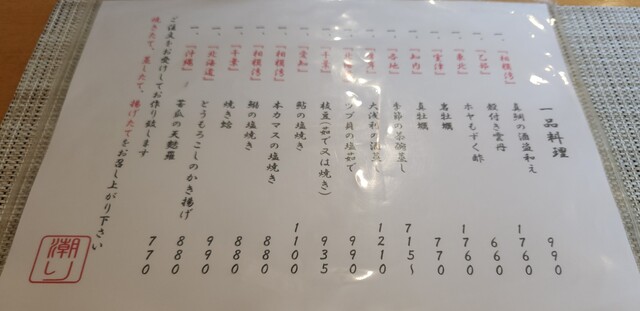 一品料理
一、『相模湾』 真鯛の酒盗和え 990
一、『乙部』 殻付き雲丹 1760
一、『東北』 ホヤもずく酢 660
一、『室津』 岩牡蠣 1760
一、『知内』 真牡蠣 770
一、『各地』 季節の茶碗蒸し 715〜
一、 大浅利の酒蒸し 1210
一、 ツブ貝の塩茹で 990
一、『千葉』 枝豆(茹で又は焼き) 935
一、『愛知』 鮎の塩焼き 1100
一、『相模湾』 本カマスの塩焼き 880
一、『相模湾』 鰯の塩焼き 880
一、『千葉』 焼き蛤 990
一、『北海道』 とうもろこしのかき揚げ 880
一、『沖縄』 苦瓜の天麩羅 770
ご注文をお受けしてお作り致します
焼きたて、蒸したて、揚げたてをお召し上がり下さい
潮り